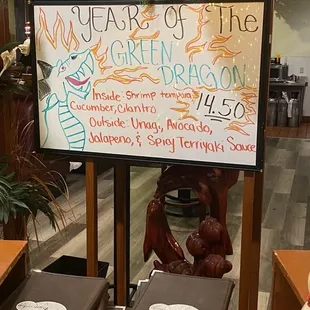 YEAR of The
GREEN
DRAGON
Inside: Shrimp tempura
Cucumber, Cilantro
14.50
Outside: Unagi, Avocado,
Jalapeno, & Spicy Terriyaki Sauce